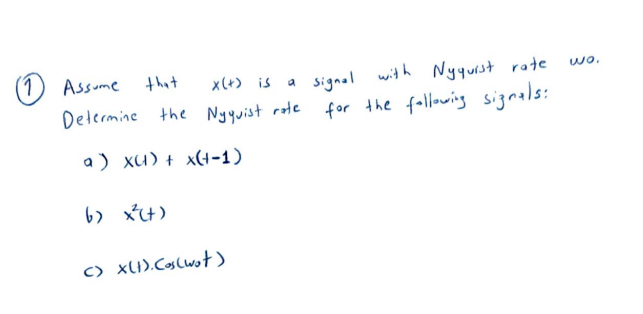 ① Assume that x(t) is a signal with Nyquist rate wo.
Determine the Nyquist rate for the following signals:
a) x(t) + x(t-1)
b) x²(t)
c) x(t).Cos(wot)